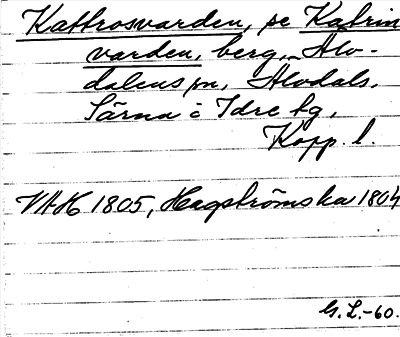 Kattrosvarden, se Katrin
varden, berg, Älv-
dalens sn, Älvdals,
Särna o Idre tg,
Kopp. l.
VAH 1805, Hagströmska 1804
G. L.-60.